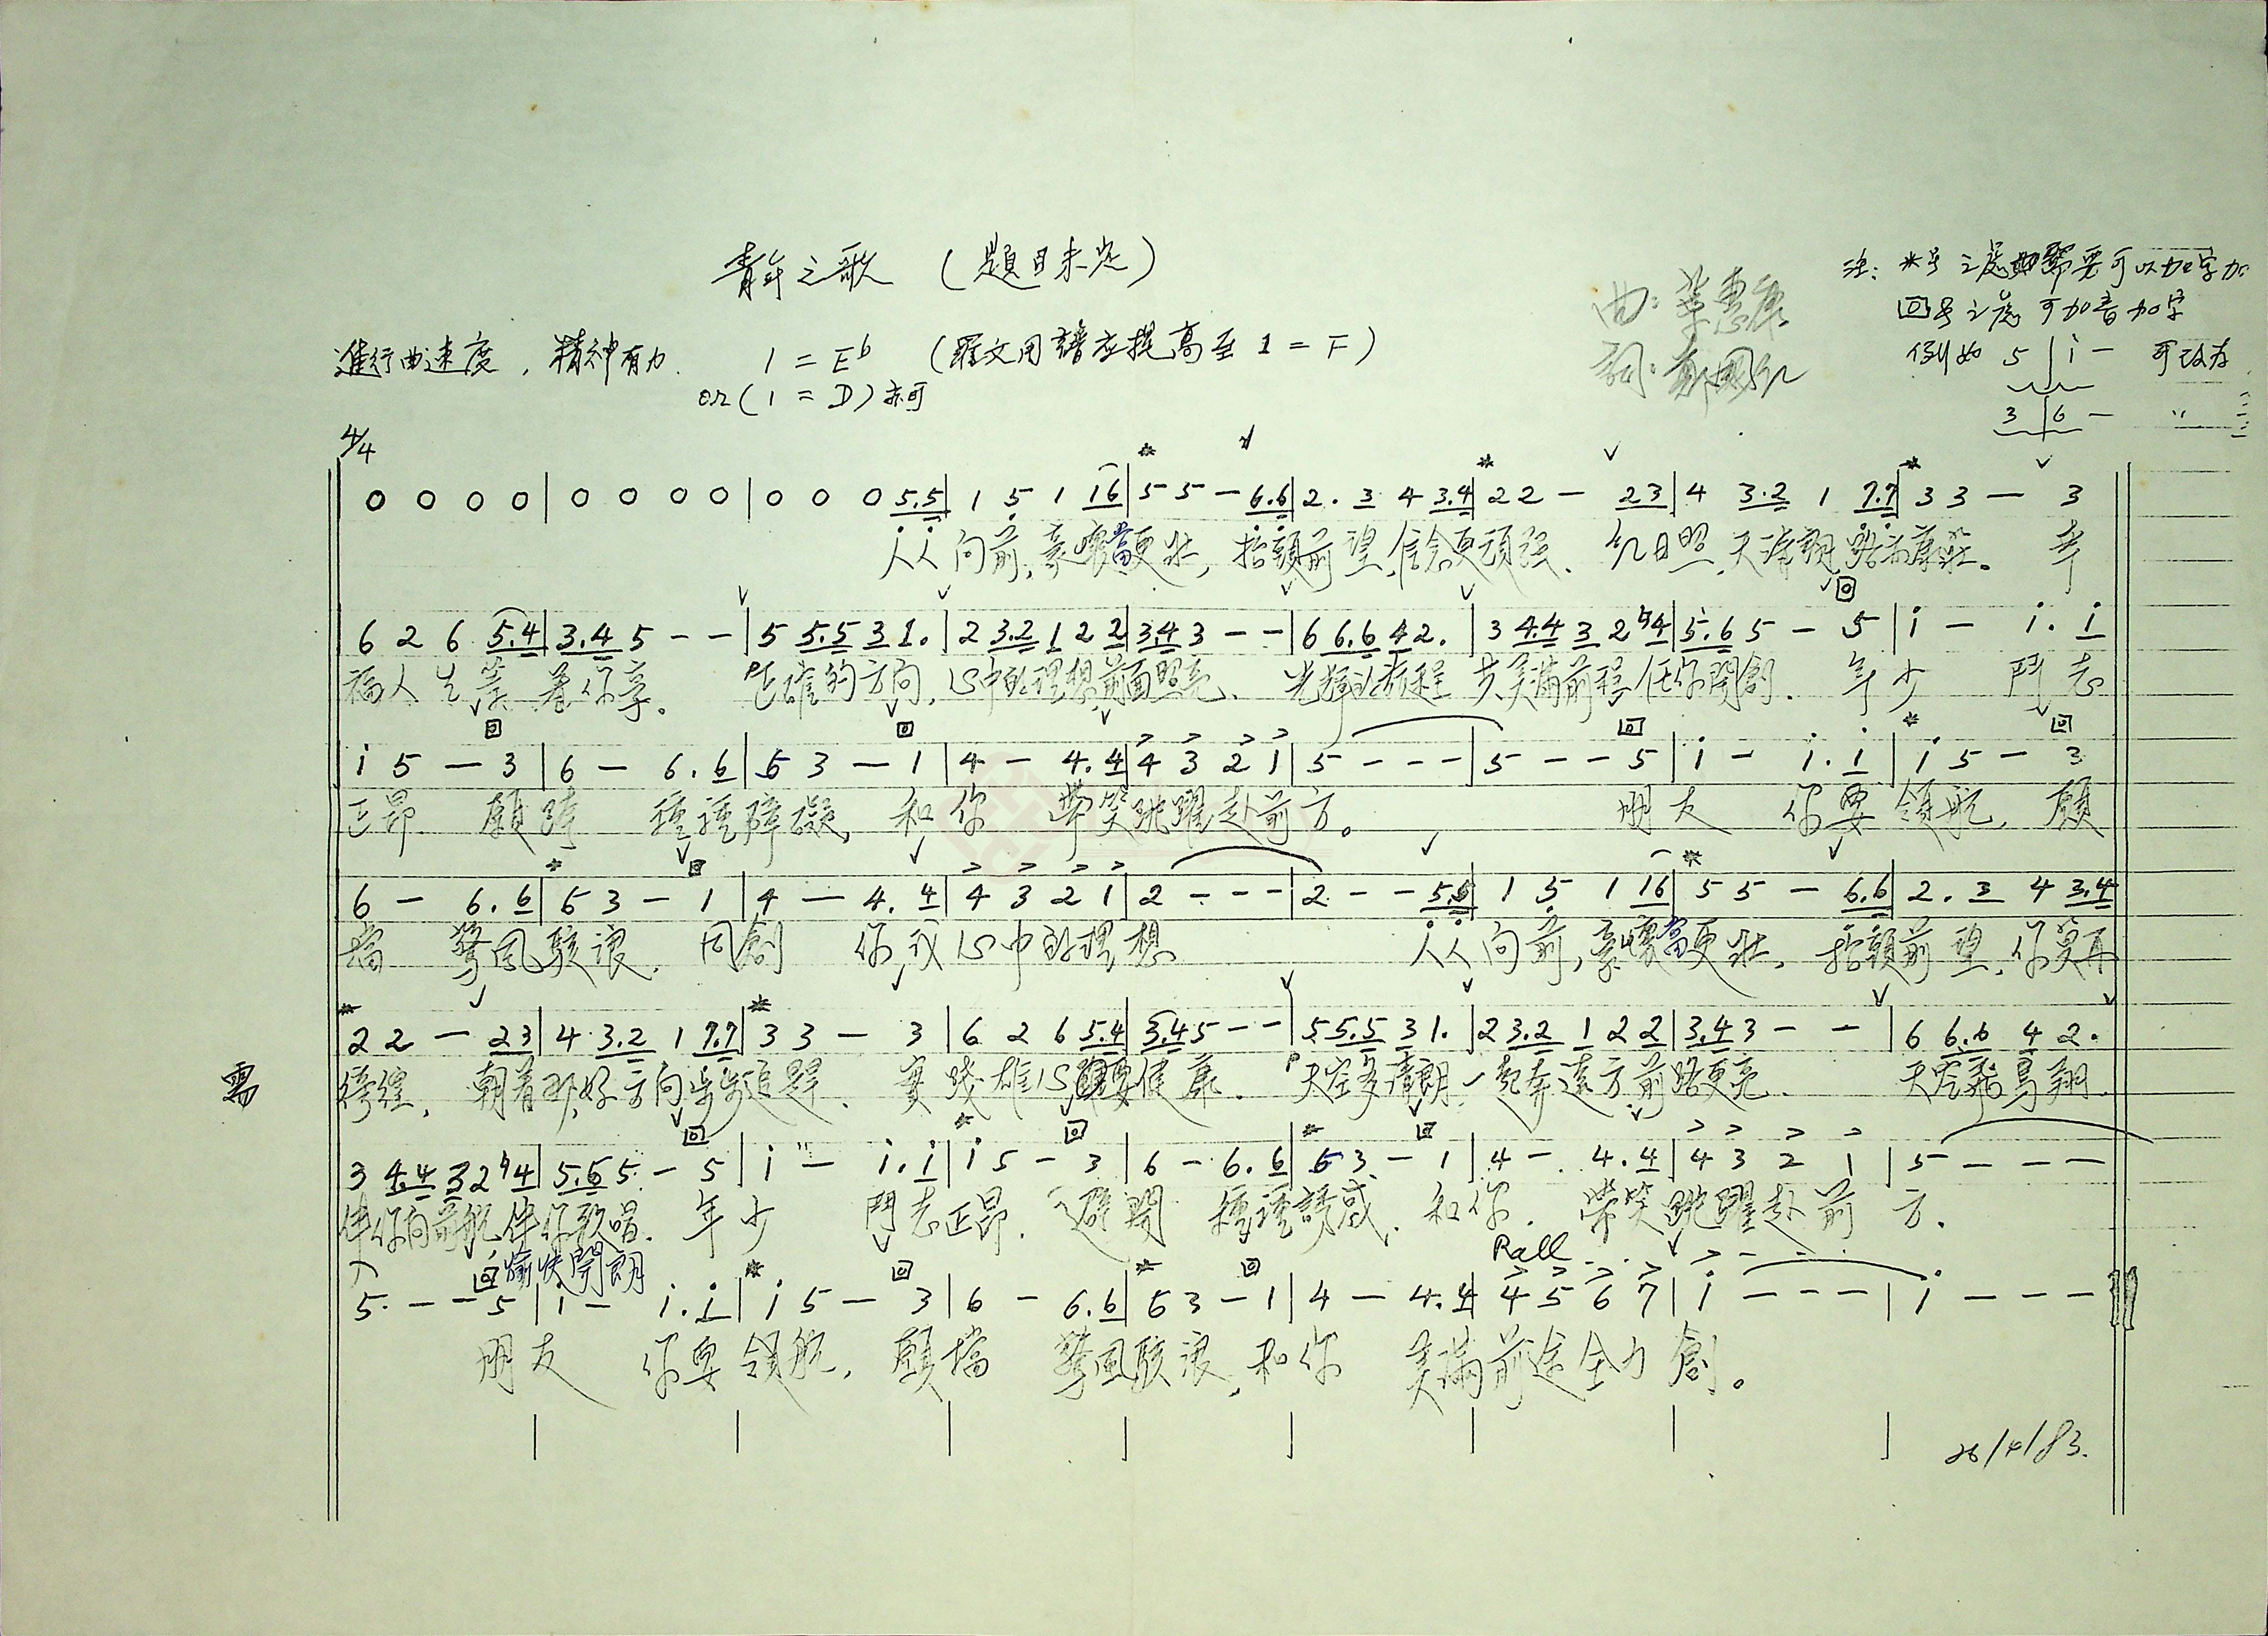 青年之歌 (題目未定)
曲: 葉惠康
詞: 鄭國江
注: *号之處如需要可以加字
回号之處可加音加字
例如 5 | i - 可改為
3 | 6 - 〃
進行曲速度, 精神有力. 1 = E♭ (羅文用譜應提高至 1 = F)
or (1 = D) 亦可
4/4
0 0 0 0 | 0 0 0 0 | 0 0 0 5.5 | 1 5 1 16 | 5 5 - 6.6 | 2. 3 4 3.4 | 2 2 - 23 | 4 3.2 1 7.7 | 3 3 - 3
人人向前, 豪懷當更壯, 抬頭前望, 信念更頑强. 紅日照, 天清朗, 路為康莊. 幸
6 2 6 5.4 | 3.4 5 - - | 5 5.5 3 1. | 2 3.2 1 2 2 | 3.4 3 - - | 6 6.6 4 2. | 3 4.4 3 2 ♮4 | 5.6 5 - 5 | i - i. i
福人生等著你享。 正確的方向, 心中的理想前面照亮. 光輝的旅程 共美滿前程任你開創. 年少 鬥志
i 5 - 3 | 6 - 6. 6 | 6 3 - 1 | 4 - 4. 4 | 4 3 2 1 | 5 - - - | 5 - - 5 | i - i. i | i 5 - 3
正昂 願降 種種障礙, 和你 帶笑跳躍赴前方。 朋友 你要領航, 願
6 - 6. 6 | 6 3 - 1 | 4 - 4. 4 | 4 3 2 1 | 2 - - - | 2 - - 5.5 | 1 5 1 16 | 5 5 - 6.6 | 2. 3 4 3.4
擋 驚風駭浪, 同創 你我心中的理想 人人向前, 豪懷當更壯, 抬頭前望, 你莫再
2 2 - 23 | 4 3.2 1 7.7 | 3 3 - 3 | 6 2 6 5.4 | 3.4 5 - - | 5 5.5 3 1. | 2 3.2 1 2 2 | 3.4 3 - - | 6 6.6 4 2.
徬徨, 朝着那好方向步步追尋. 實踐雄心要健康. 天空多清朗, 一起奔遠方前路更亮. 天空飛鳥翔
3 4.4 3 2 ♮4 | 5.6 5 - 5 | i - i. i | i 5 - 3 | 6 - 6. 6 | 6 3 - 1 | 4 - 4. 4 | 4 3 2 1 | 5 - - -
伴你向前航, 伴你歌唱. 年少 鬥志正昂. 避開 種種誘惑, 和你. 帶笑跳躍赴前方.
愉快開朗
Rall
5 - - 5 | i - i. i | i 5 - 3 | 6 - 6. 6 | 6 3 - 1 | 4 - 4. 4 | 4 5 6 7 | i - - - | i - - -
朋友 你要領航, 願擋 驚風駭浪, 和你 美滿前途全力創。
26/4/83.